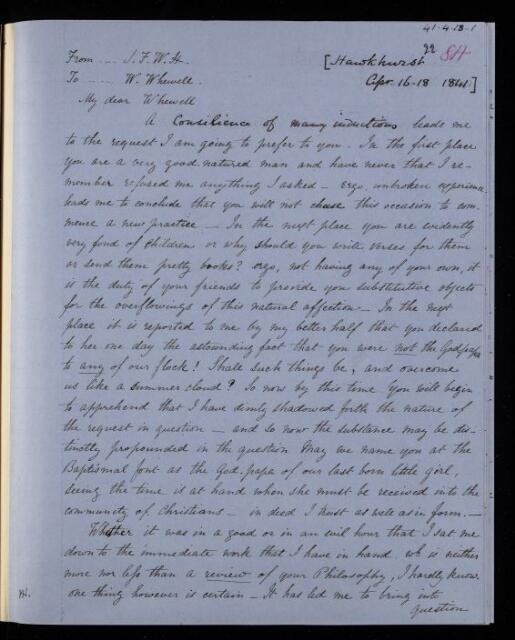 41-4.18-1
22 84
From .... J. F. W. H.
[Hawkhurst
To .... W. Whewell.
Apr. 16-18 1841]
My dear Whewell
A Consilience of many inductions leads me
to the request I am going to prefer to you. In the first place
you are a very good natured man and have never that I re-
member refused me anything I asked - ergo, unbroken experience
leads me to conclude that you will not chuse this occasion to com-
mence a new practice - In the next place you are evidently
very fond of children or why should you write verses for them
or send them pretty books? ergo, not having any of your own, it
is the duty of your friends to provide you substitutive objects
for the overflowings of this natural affection - In the next
place it is reported to me by my better half that you declared
to her one day the astounding fact that you were not the Godpapa
to any of our flock! Shall such things be, and overcome
us like a summer cloud? So now by this time you will begin
to apprehend that I have dimly shadowed forth the nature of
the request in question - and so now the substance may be dis-
tinctly propounded in the question May we name you at the
Baptismal font as the God. papa of our last born little girl,
seeing the time is at hand when she must be received into the
community of Christians - in deed I trust as well as in form. -
Whether it was in a good or in an evil hour that I sat me
down to the immediate work that I have in hand wh is neither
more nor less than a review of your Philosophy, I hardly know.
one thing however is certain - It has led me to bring into
question